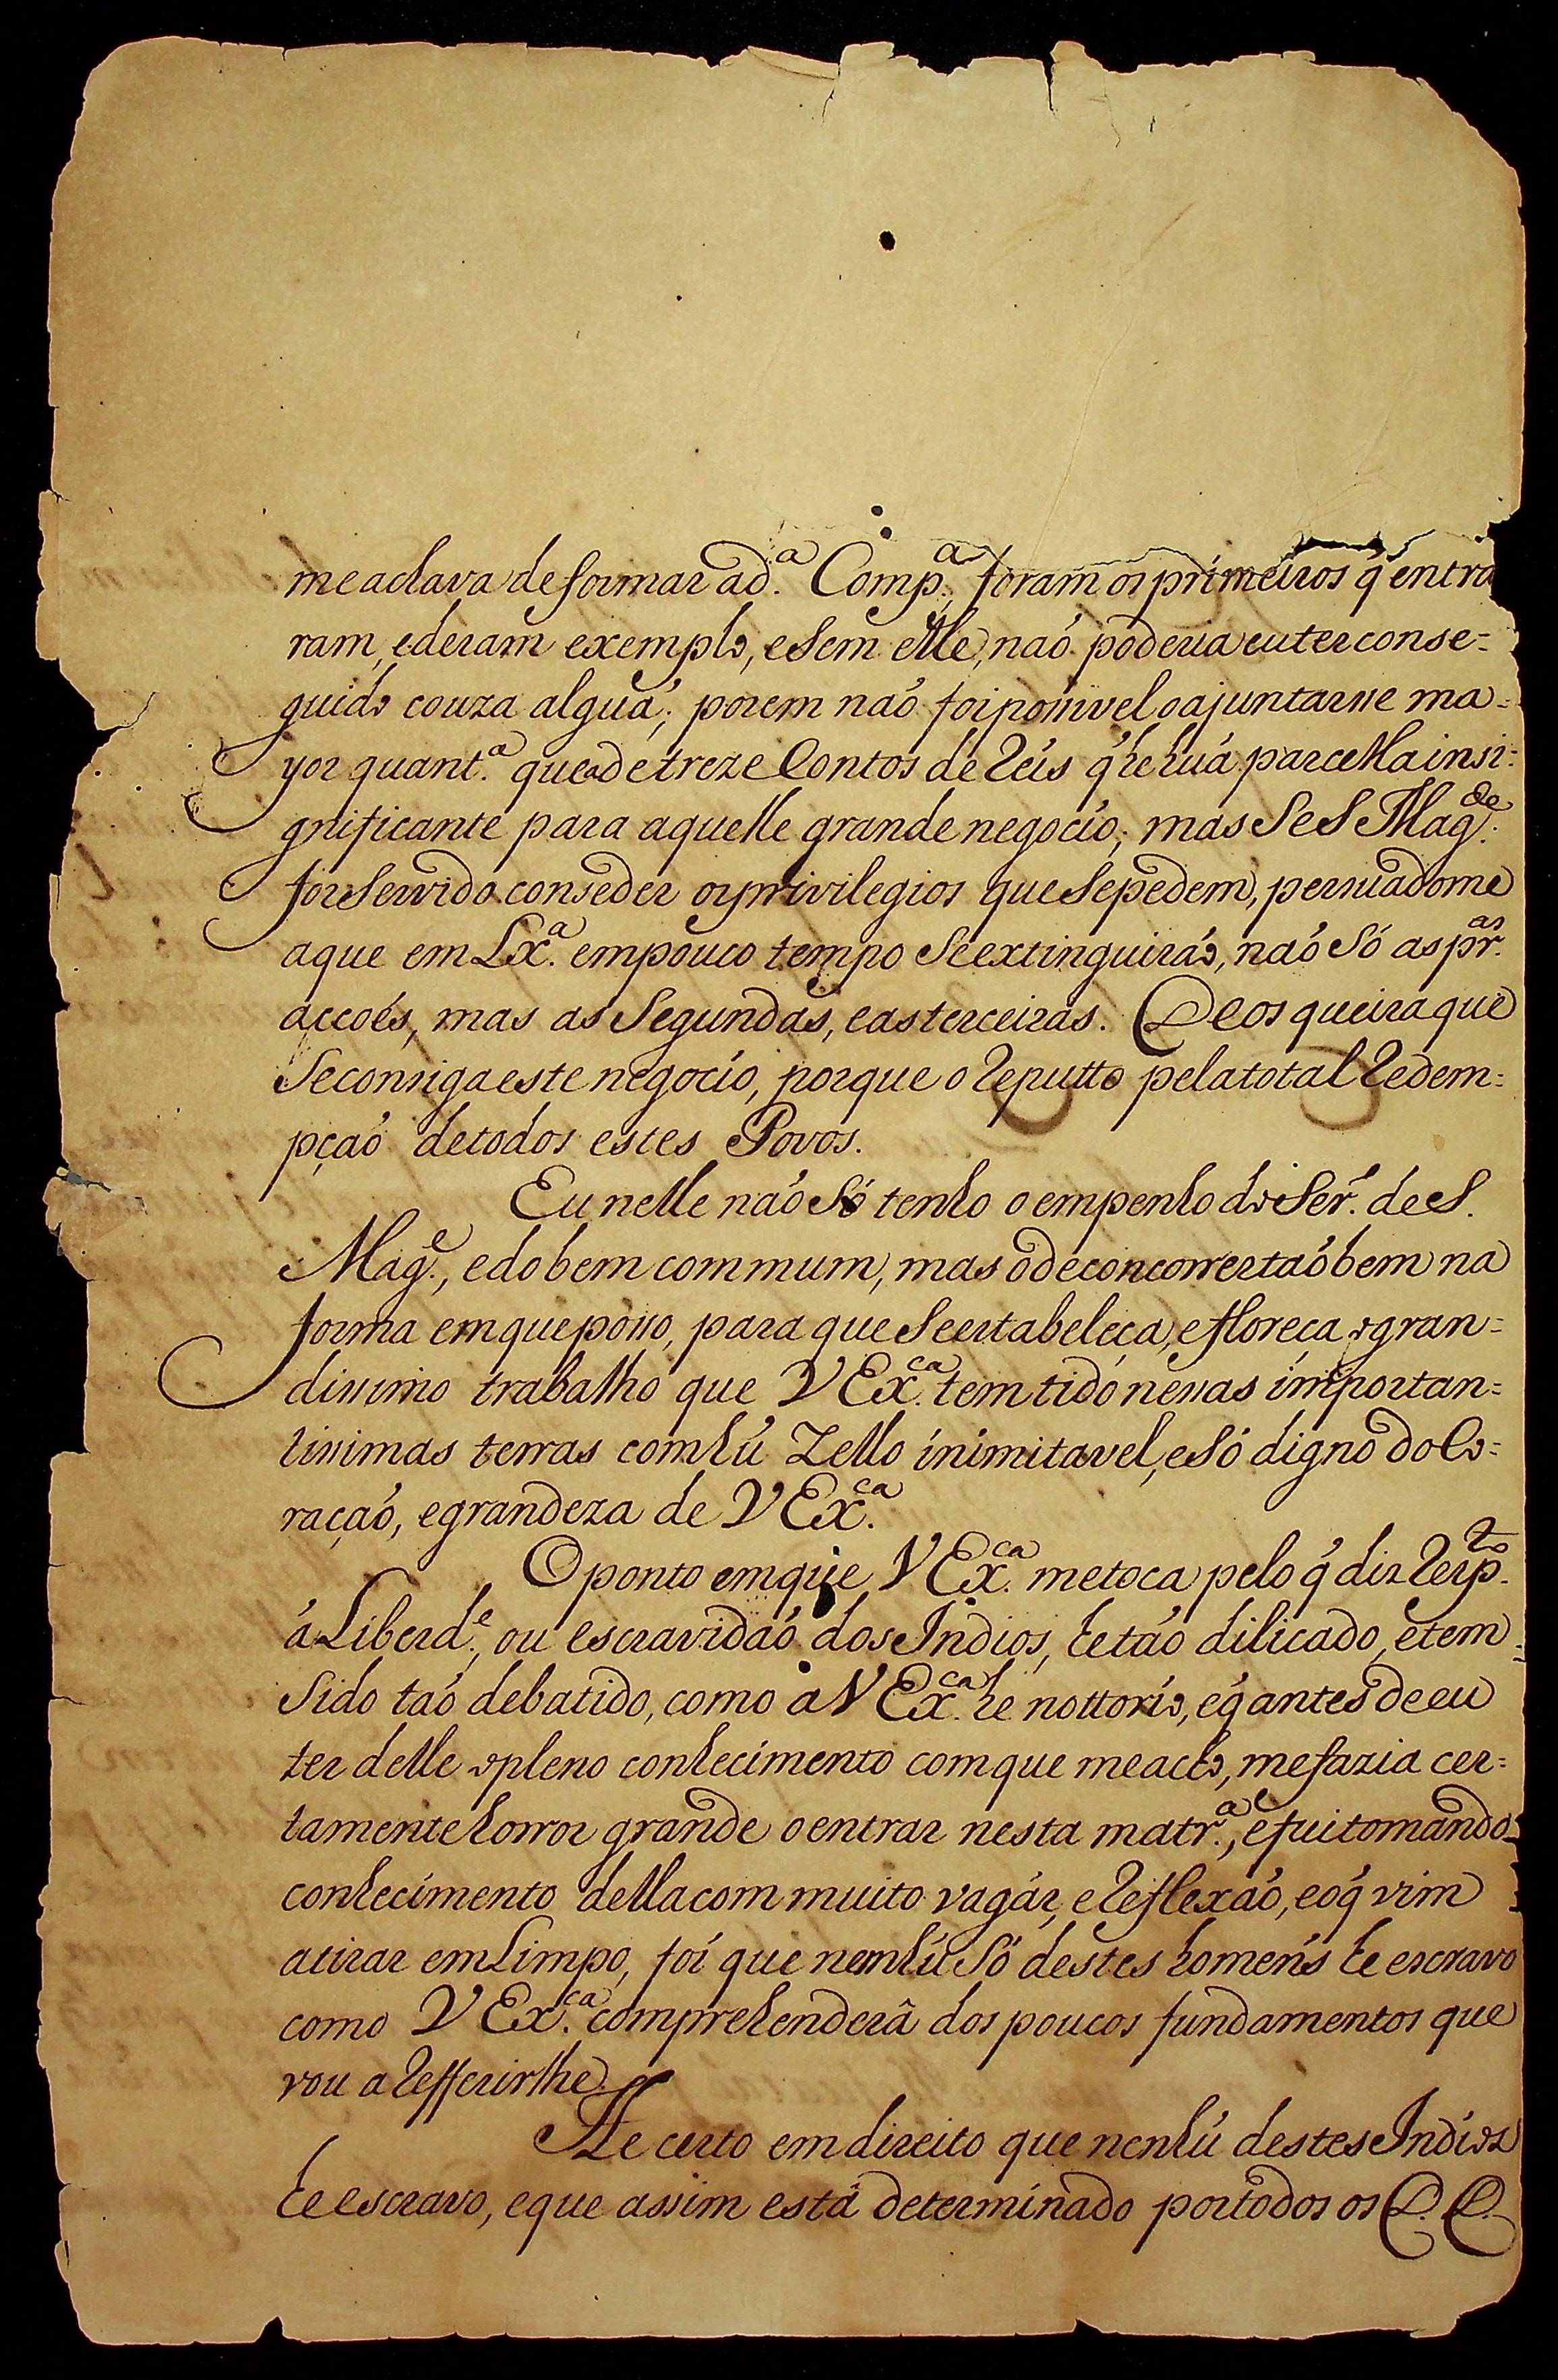 me achava de formar a d.ª Comp.ª, foram os primeiros q̃ entra
ram, e deram exemplo, e sem elle, naõ poderia eu ter conse=
guido couza algũa; porem naõ foi possivel o ajuntarsse ma=
yor quant.ª que a de treze Contos de Reis q̃ he hũa parcella insi=
gnificante para aquelle grande negocio; mas se S Mag.de
for servido conseder os privilegios que se pedem, persuadome
a que em Lx.ª em pouco tempo se extinguiráõ, naõ só as pr.as
accoẽs, mas as segundas, e as terceiras. Deos queira que
se consiga este negocio, porque o reputto pela total redem=
pçaõ de todos estes Povos.
Eu nelle naõ só tenho o empenho do Ser.º de S.
Mag.e, e do bem commum, mas o de concorrer taõbem na
forma em que posso, para que se estabeleça, e floreça o gran=
dissimo trabalho que V Ex.ca tem tido nessas importan=
tissimas terras com hũ Zello inimitavel, e só digno do Co=
raçaõ, e grandeza de V Ex.ca
O ponto em que V Ex.ca me toca pelo q̃ diz resp.to
á Liberd.e, ou escravidaõ dos Indios, he taõ dilicado, e tem
sido taõ debatido, como a V Ex.ca he nottorio, e q̃ antes de eu
ter delle o pleno conhecimento com que me acho, me fazia cer=
tamente horror grande o entrar nesta matr.ª, e fui tomando
conhecimento della com muito vagár, e reflexaõ, e o q̃ vim
a tirar em limpo, foi que nenhũ só destes homẽns he escravo
como V Ex.ca comprehenderâ dos poucos fundamentos que
vou a refferirlhe.
He certo em direito que nenhũ destes Indios
he escravo, e que assim está determinado por todos os D. D.